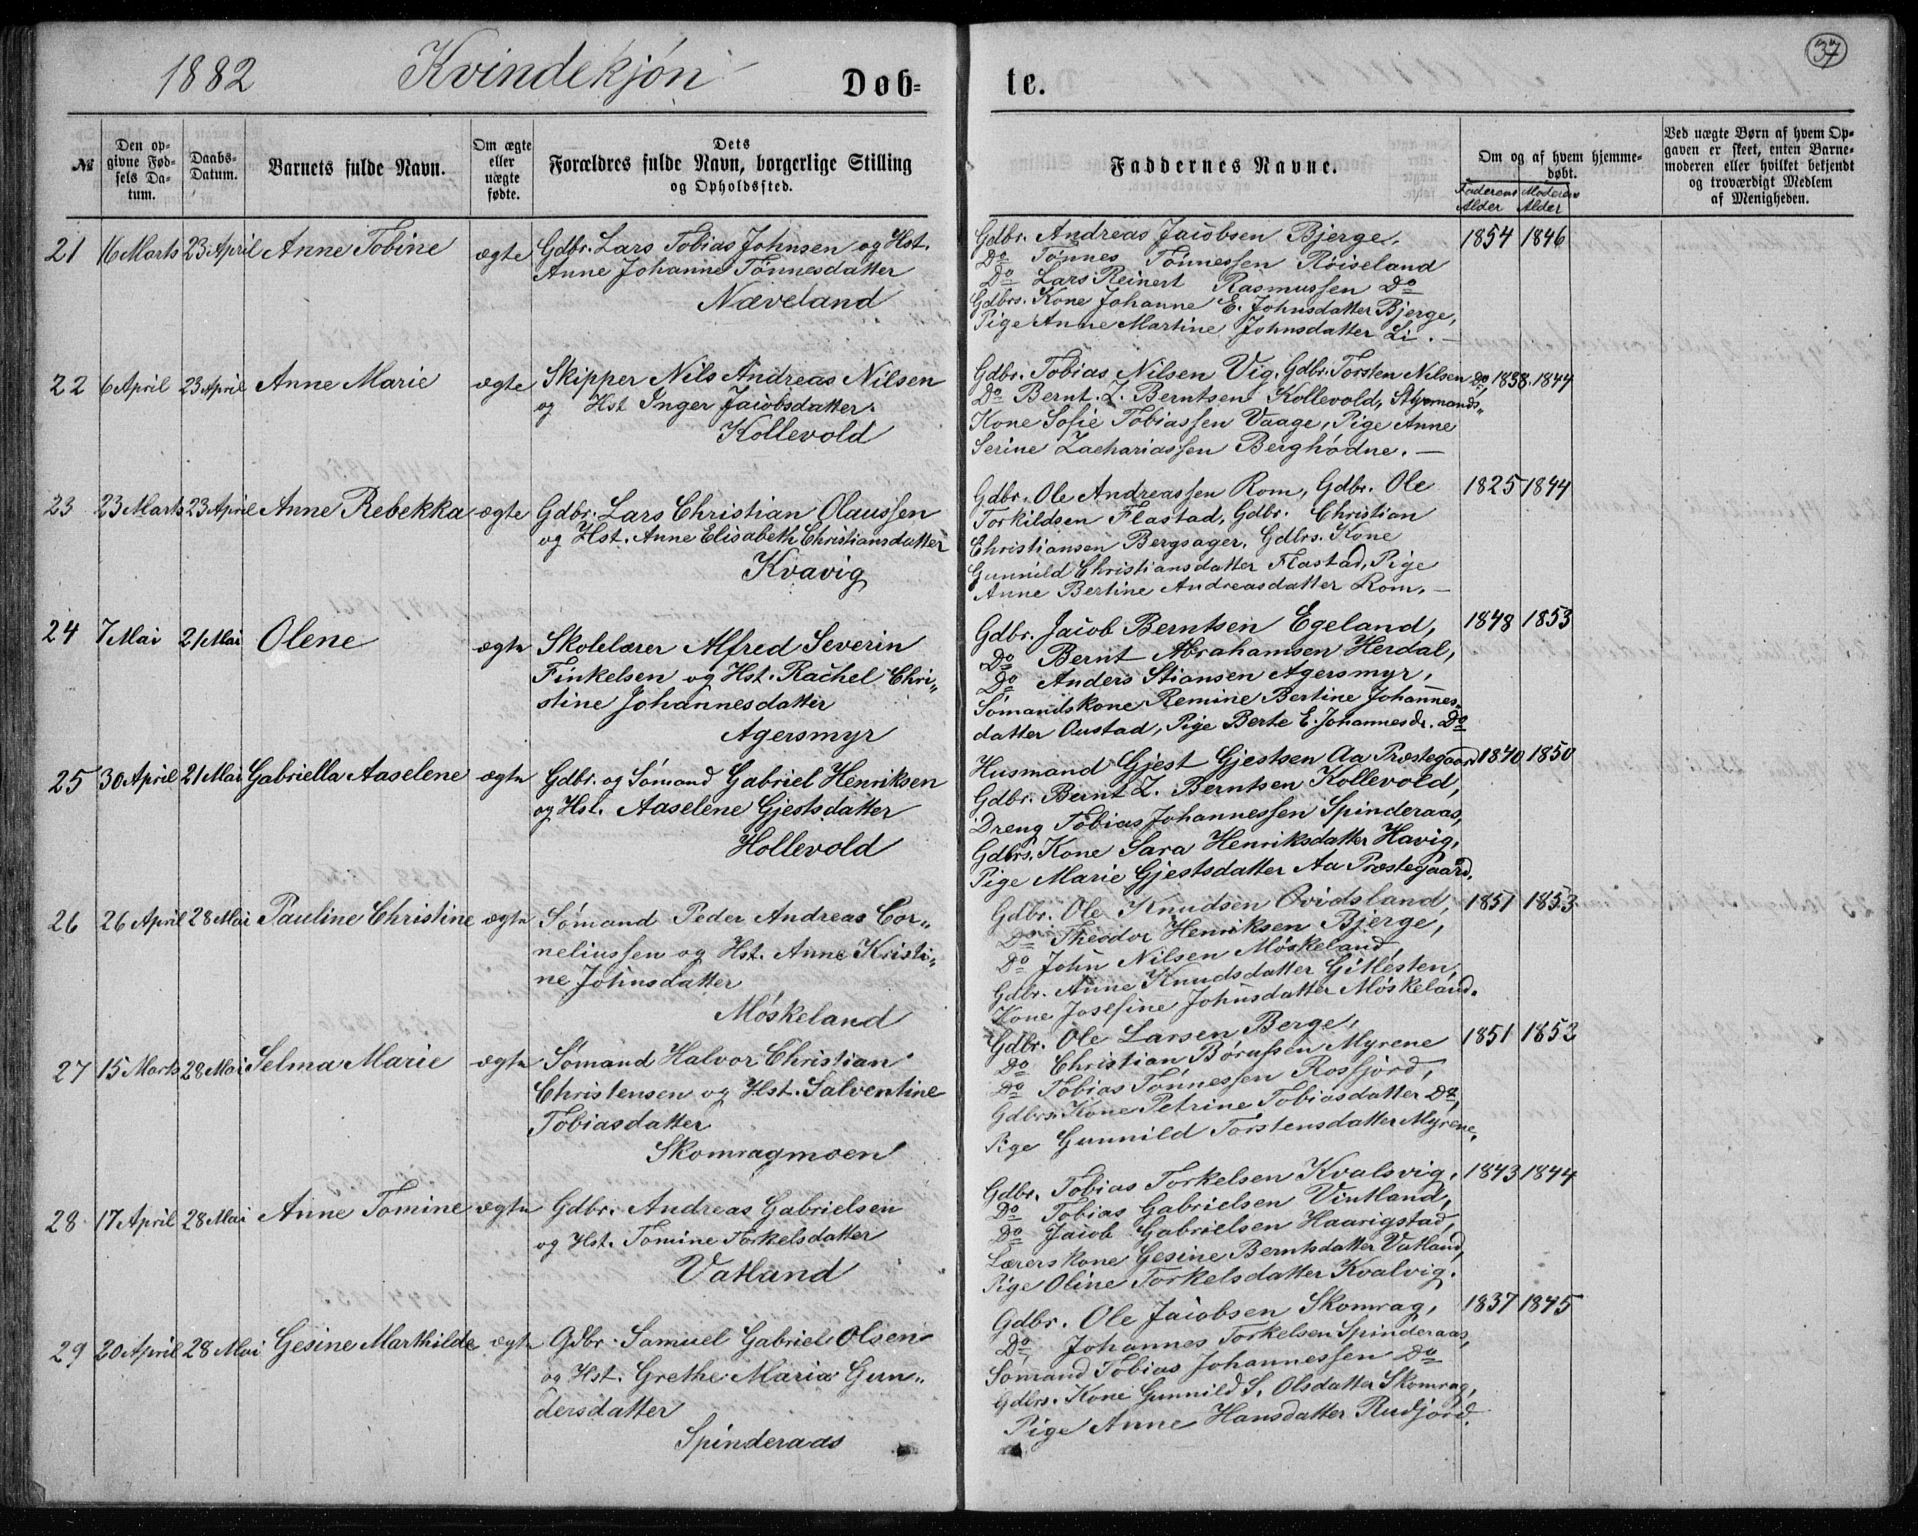 1882 Kvindekjön Døb-
№
Den op-
givne Fød-
sels Da-
tum.
Daabs-
Datum.
Barnets fulde Navn.
Om ægte
eller
uægte
fødte.
Dets
Forældres fulde Navn, borgerlige Stilling
og Opholdssted.
21 16 Marts 23 April Anne Tobine ægte Gdbr. Lars Tobias Johnsen og Hst.
Anne Johanne Tönnesdatter
Næveland
22 6 April 23 April Anne Marie ægte Skipper Nils Andreas Nilsen
og Hst Inger Jacobsdatter.
Kollevold
23 23 Marts 23 April Anne Rebekka ægte Gdbr. Lars Christian Olaussen
og Hst. Anne Elisabeth Christiansdatter
Kvavig
24 7 Mai 21 Mai Olene ægte Skolelærer Alfred Severin
Finkelsen og Hst. Rachel Chri„
stine Johannesdatter
Agersmyr
25 30 April 21 Mai Gabriella Aaselene ægte Gdbr. og Sömand Gabriel Henriksen
og Hst. Aaselene Gjestsdatter
Hollevold
26 26 April 28 Mai Pauline Christine ægte Sömand Peder Andreas Cor„
neliussen og Hst. Anne Kristi„
ne Johnsdatter
Möskeland
27 15 Marts 28 Mai Selma Marie ægte Sömand Halvor Christian
Christensen og Hst. Salventine
Tobiasdatter
Skomragmoen
28 17 April 28 Mai Anne Tomine ægte Gdbr. Andreas Gabrielsen
og Hst. Tomine Torkelsdatter
Vatland
29 20 April 28 Mai Gesine Marthilde ægte Gdbr. Samuel Gabriel Olsen
og Hst. Grethe Maria Gun„
dersdatter
Spinderaas
te.
37
Faddernes Navne.
Om og af hvem hjemme-
døbt.
Faderens Moderens
Alder Alder
Ved uægte Børn af hvem Op-
gaven er skeet, enten Barne-
moderen eller hvilket bekjendt
og troværdigt Medlem
af Menigheden.
Gdbr. Andreas Jacobsen Bjerge, 1854 1846
Do Tönnes Tönnessen Röiseland
Do Lars Reinert Rasmussen Do
Gdbrs. Kone Johanne E. Johnsdatter Bjerge,
Pige Anne Martine Johnsdatter Li.
Gdbr. Tobias Nilsen Vig, Gdbr. Torsten Nilsen Do, 1838. 1844
Do Bernt Z. Berntsen Kollevold, Styrmands„
Kone Sofie Tobiassen Vaage, Pige Anne
Serine Zachariassen Berghödne.
Gdbr. Ole Andreassen Rom, Gdbr. Ole 1825 1844
Torkildsen Flastad, Gdbr. Christian
Christiansen Bergsager, Gdbrs. Kone
Gunnild Christiansdatter Flastad, Pige
Anne Bertine Andreasdatter Rom.
Gdbr. Jacob Berntsen Egeland, 1848 1853
Do Bernt Abrahamsen Herdal,
Do Anders Stiansen Agersmyr,
Sömandskone Remine Bertine Johannes„
datter Oustad, Pige Berte E. Johannesdr. Do
Husmand Gjest Gjestsen Aa Præstegaard 1840 1850
Gdbr. Bernt Z. Berntsen Kollevold,
Dreng Tobias Johannessen Spinderaas,
Gdbrs. Kone Sara Henriksdatter Havig,
Pige Marie Gjestsdatter Aa Præstegaard.
Gdbr. Ole Knudsen Ovidsland, 1851 1853
Do Theodor Henriksen Bjerge,
Do John Nilsen Möskeland,
Gdbr. Anne Knudsdatter Gitlesten,
Kone Josefine Johnsdatter Möskeland.
Gdbr. Ole Larsen Berge, 1851 1852
Do Christian Börufsen Myrene
Do Tobias Tönnessen Rosfjord,
Gdbrs. Kone Petrine Tobiasdatter Do,
Pige Gunnild Torstensdatter Myrene,
Gdbr. Tobias Torkelsen Kvalsvig, 1843 1844
Do Tobias Gabrielsen Vintland,
Do Jacob Gabrielsen Haarigstad,
Lærers Kone Gesine Berntsdatter Vatland,
Pige Oline Torkelsdatter Kvalvig.
Gdbr. Ole Jacobsen Skomrag, 1837 1845
Do Johannes Torkelsen Spinderaas,
Sömand Tobias Johannessen Do
Gdbrs. Kone Gunnild S. Olsdatter Skomrag,
Pige Anne Hansdatter Rudjord.